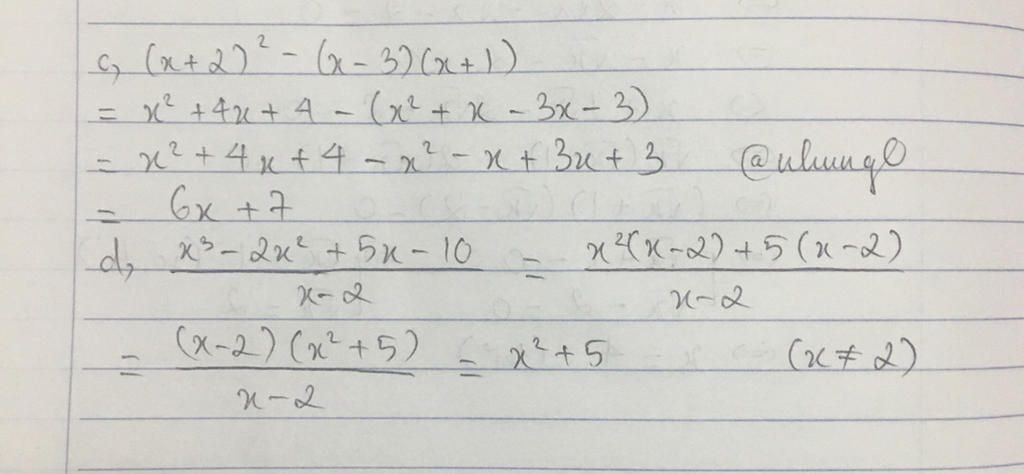 c, (x+2)² - (x-3)(x+1)
= x² + 4x + 4 - (x² + x - 3x - 3)
= x² + 4x + 4 - x² - x + 3x + 3 @uhungl
= 6x + 7
d, (x³ - 2x² + 5x - 10)/(x-2) = (x²(x-2) + 5(x-2))/(x-2)
= ((x-2)(x²+5))/(x-2) = x² + 5 (x ≠ 2)